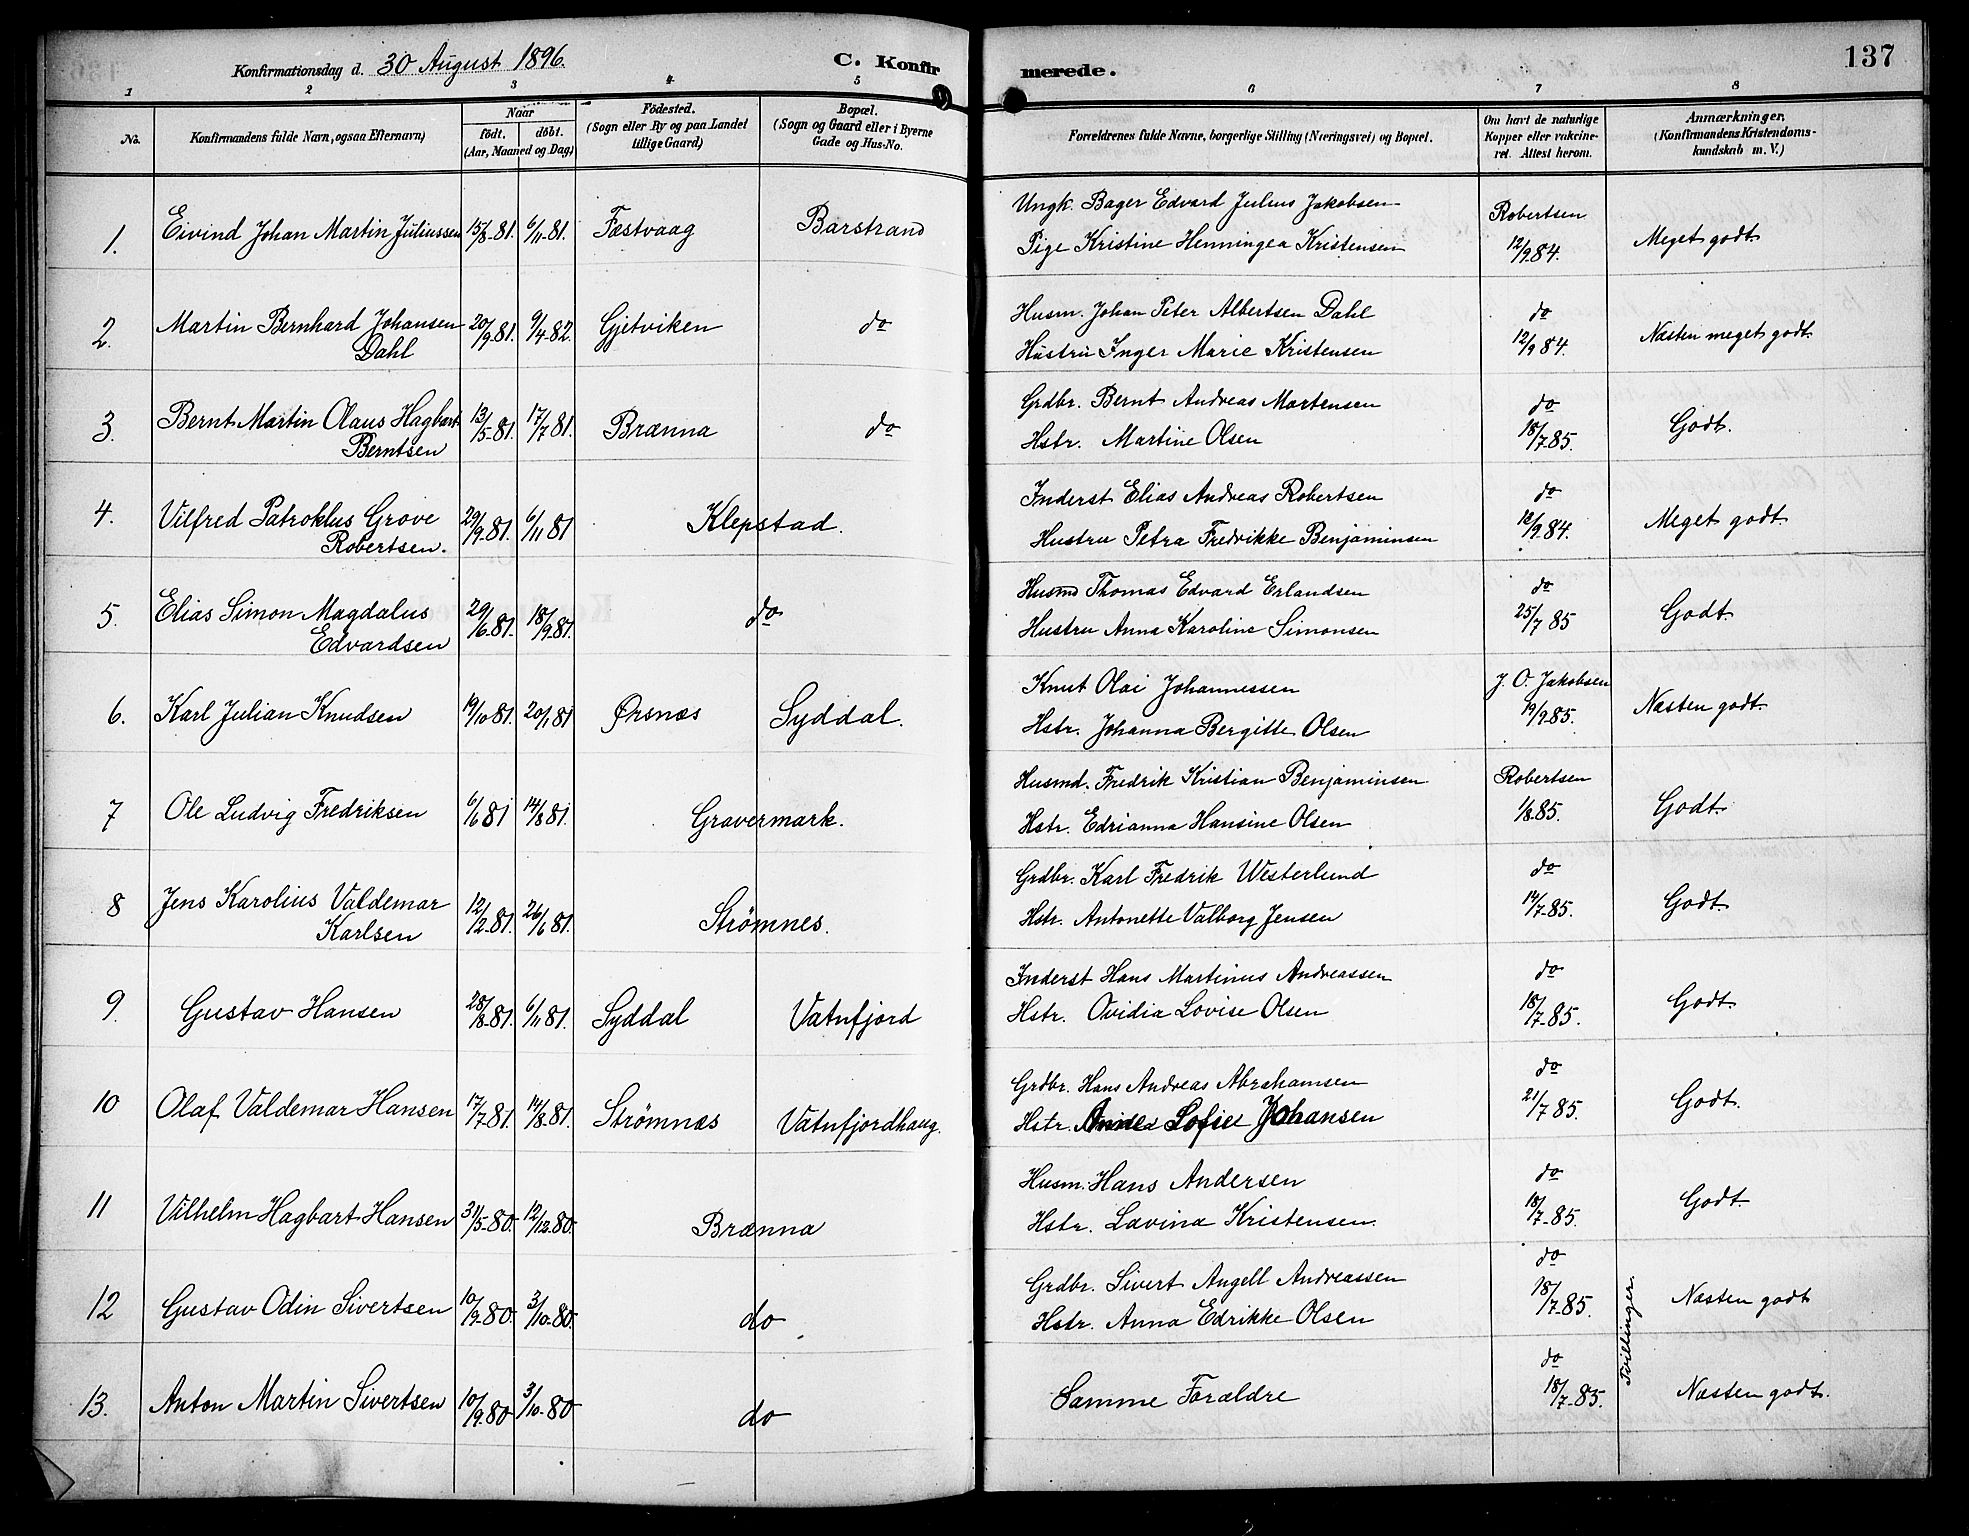 Konfirmationsdag d. 30 August 1896. C. Konfirmerede. 137
1 2 3 4 5 6 7 8
No. Konfirmandens fulde Navn, ogsaa Efternavn) Naar født. døbt. (Aar, Maaned og Dag) Fødested. (Sogn eller By og paa Landet tillige Gaard) Bopæl. (Sogn og Gaard eller i Byerne Gade og Hus-No. Forældrenes fulde Navne, borgerlige Stilling (Næringsvei) og Bopæl. Om havt de naturlige Kopper eller vakcineret. Attest herom. Anmærkninger, (Konfirmandens Kristendomskundskab m. V.)
1. Eivind Johan Martin Juliussen 15/8-81. 6/11-81. Fæstvaag Barstrand Ungk. Bager Edvard Julius Jakobsen Robertsen
Pige Kristine Henningea Kristensen 12/9 84. Meget godt.
2. Martin Bernhard Johansen 20/9-81. 9/4-82. Gjetviken do Husm. Johan Peter Albertsen Dahl do
Dahl Hustru Inger Marie Kristensen 12/9 84. Næsten meget godt.
3. Bernt Martin Olaus Hagbart 13/5-81. 17/7 81. Brænna do Grdbr. Bernt Andreas Mortensen do
Berntsen Hstr. Martine Olsen 18/7-85. Godt.
4. Vilfred Patroklus Grove 29/9-81. 6/11 81 Klepstad. Inderst Elias Andreas Robertsen do
Robertsen. Hustru Petra Fredrikke Benjaminsen 12/9 84. Meget godt
5. Elias Simon Magdalus 29/6-81. 18/9-81. do Husmd Thomas Edvard Erlandsen do
Edvardsen Hustru Anna Karoline Simonsen 25/7 85 Godt.
6. Karl Julian Knudsen 19/10 81. 20/11 81 Ørsnæs Syddal. Knut Olai Johannessen J. O. Jakobsen
Hstr. Johanna Bergitte Olsen 19/9 85. Næsten godt.
7 Ole Ludvig Fredriksen 6/6 81 14/8 81. Gravermark. Husmd. Fredrik Kristian Benjaminsen Robertsen
Hstr. Edrianna Hansine Olsen 1/8 85. Godt.
8 Jens Karolius Valdemar 12/2-81. 26/6 81. Strømnes. Grdbr. Karl Fredrik Westerlund do
Karlsen Hstr. Antonette Valborg Jensen 14/7-85. Godt.
9. Gustav Hansen 28/8-81. 6/11 81. Syddal Vatnfjord Inderst Hans Martinus Andreassen do
Hstr. Ovidia Lovise Olsen 18/7-85. Godt.
10 Olaf Valdemar Hansen 17/7 81. 14/8-81. Strømnæs Vatnfjordhaug. Grdbr. Hans Andreas Abrahamsen do
Hstr. Sofie Johansen 21/7 85. Godt.
11 Vilhelm Hagbart Hansen 31/5-80. 12/12-80. Brænna Husm. Hans Andersen do
Hstr. Lavina Kristensen. 18/7-85. Godt.
12 Gustav Odin Sivertsen 10/9-80. 3/10-80. do Grdbr. Sivert Angell Andreassen do
Hstr. Anna Edrikke Olsen 18/7-85. Næsten godt
Tvillinger.
13. Anton Martin Sivertsen 10/9-80 3/10-80 do Samme Forældre do
18/7-85. Næsten godt.